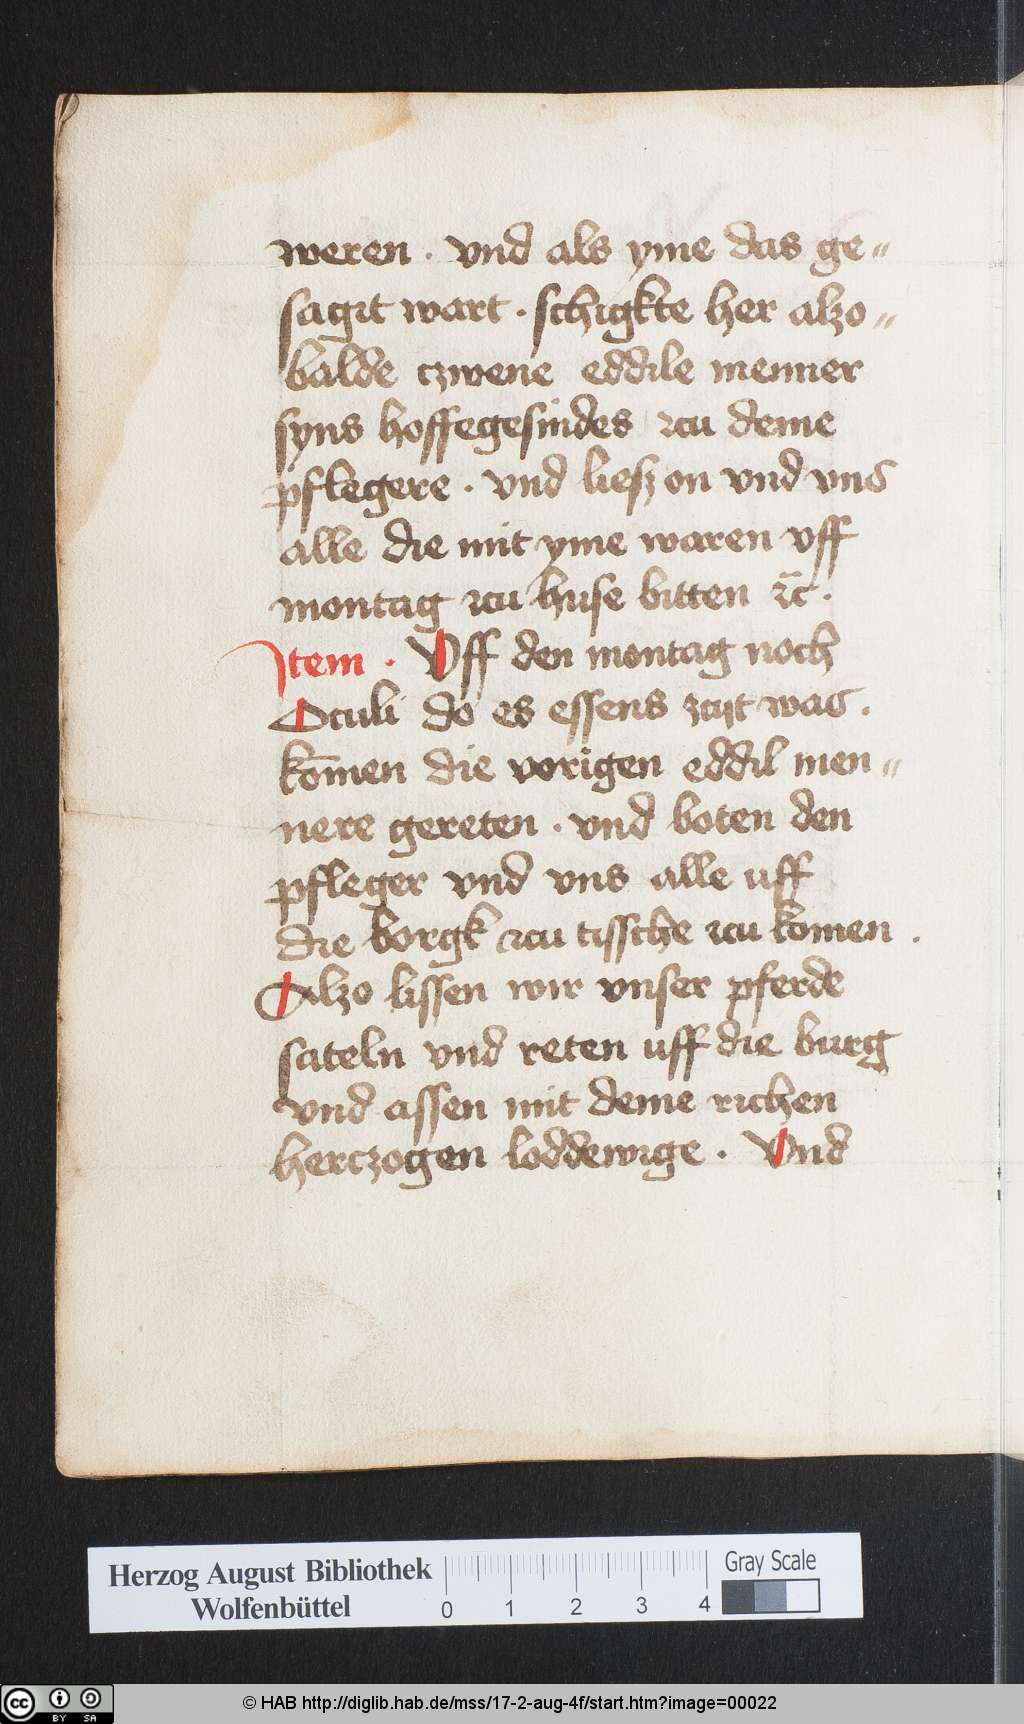 weren . vnd als yme das ge„
sagit wart . schigkte her alzo„
balde czwene eddile menner
syns hoffegesindes zcu deme
pflegere . vnd liesz on vnd vns
alle die mit yme waren vff
montag zcu huse bitten ꝛc̄ .
Item . Vff den montag noch
Oculi do es essens zcijt was .
kōmen die vorigen eddil men„
nere gereten . vnd boten den
pfleger vnd vns alle uff
die borgk zcu tissche zcu komen .
Alzo lissen wir vnser pferde
sateln vnd reten uff die burg
vnd assen mit deme richen
herczogen loddewige . Vnd
Herzog August Bibliothek
Wolfenbüttel
0 1 2 3 4
Gray Scale
cc BY SA
© HAB http://diglib.hab.de/mss/17-2-aug-4f/start.htm?image=00022